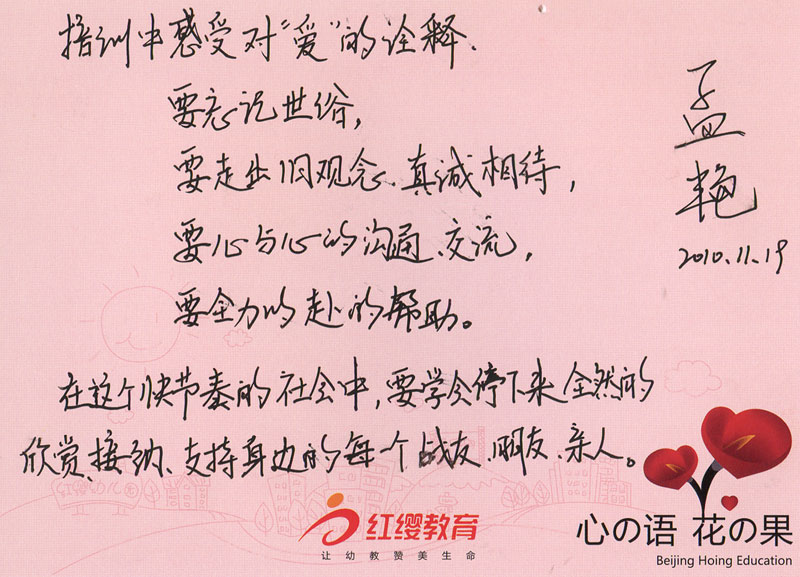 培训中感受对“爱”的诠释.
要忘记世俗,
要走出旧观念、真诚相待,
要心与心的沟通、交流,
要全力以赴的帮助。
在这个快节奏的社会中,要学会停下来全然的
欣赏、接纳、支持身边的每一个战友、朋友、亲人。
孟
艳
2010.11.19
红缨教育
让幼教赞美生命
心の语 花の果
Beijing Hoing Education